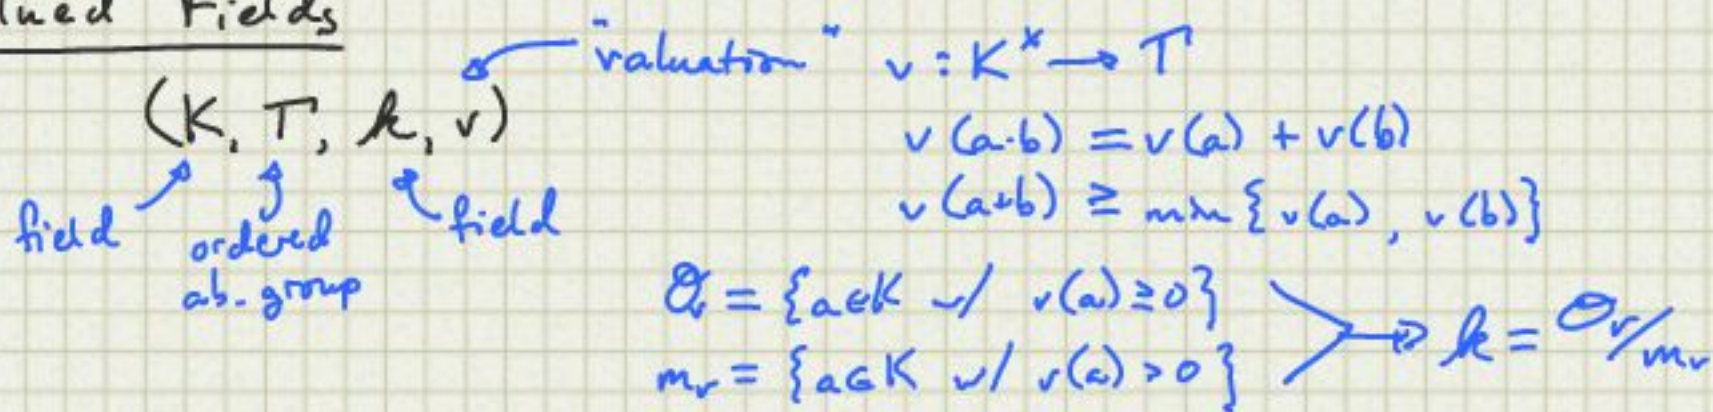 lued Fields
"valuation" v : K^× → Γ
(K, Γ, k, v)
v(a·b) = v(a) + v(b)
v(a+b) ≥ min {v(a), v(b)}
field ordered ab. group field
O_v = {a∈K w/ v(a) ≥ 0}
m_v = {a∈K w/ v(a) > 0}
k = O_v/m_v